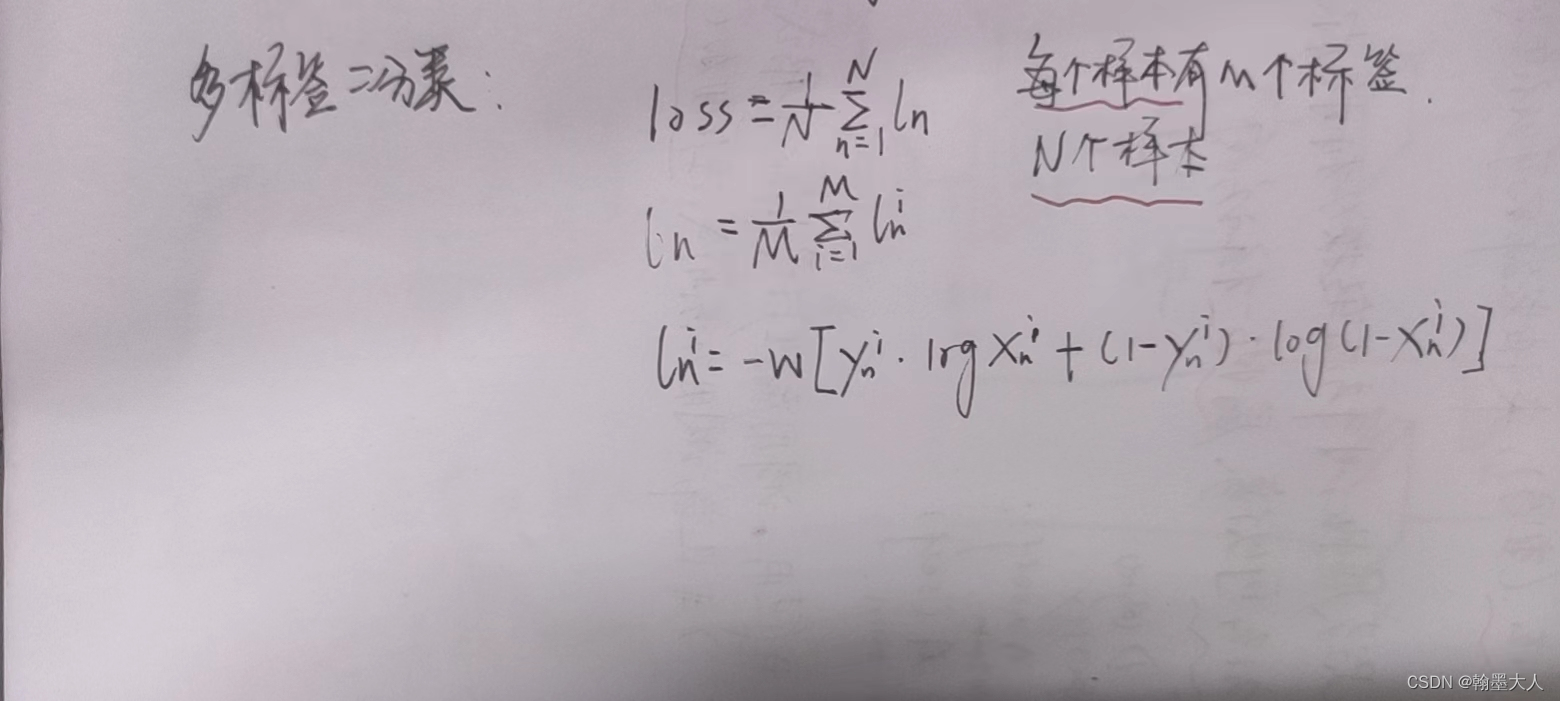 多标签二分类:
loss = 1/N Σ_{n=1}^{N} ln
每个样本有M个标签.
N个样本
ln = 1/M Σ_{i=1}^{M} l_n^i
l_n^i = -w[y_n^i · log x_n^i + (1-y_n^i) · log(1-x_n^i)]
CSDN @翰墨大人